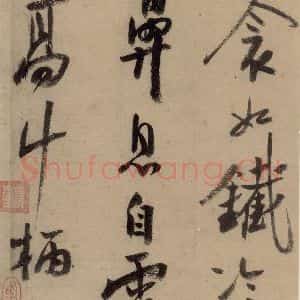 衾如鐵冷
鼻息自雷
高斗柄
Shufawang.CN